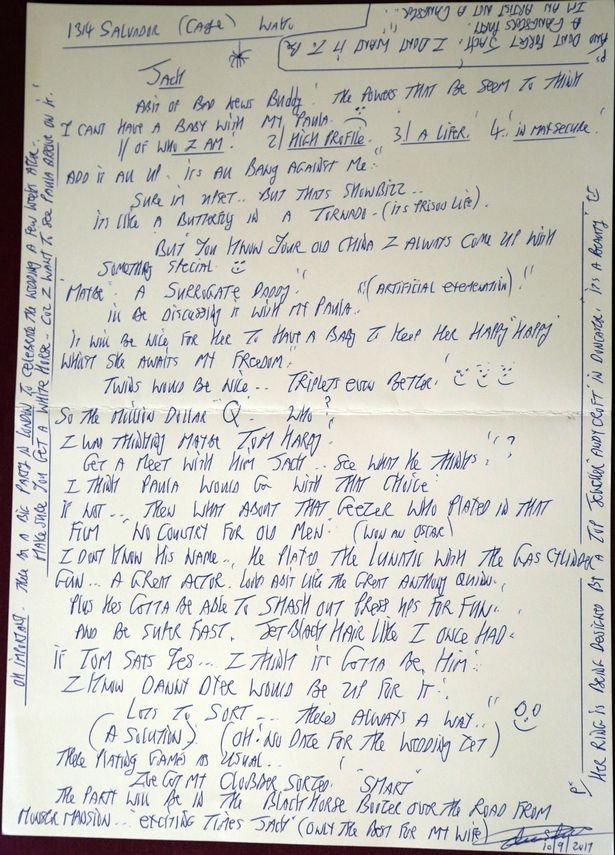 1314 SALVADOR (CAGE) WAKO
PS DONT FORGET JACK. I DONT WANT IT TO BE
A GANGSTERS PARTY.
I'M AN ARTIST NOT A GANGSTER..
JACK
ABIT OF BAD NEWS BUDDY! THE POWERS THAT BE SEEM TO THINK
I CANT HAVE A BABY WITH MY PAULA.
1/ OF WHO I AM. 2/ HIGH PROFILE. 3/ A LIFER. 4. IN MAX SECURE.
ADD IT ALL UP. ITS ALL BANG AGAINST ME.
SURE IM UPSET.. BUT THATS SHOWBIZZ..
ITS LIKE A BUTTERFLY IN A TORNADO - (ITS PRISON LIFE).
BUT YOU KNOW YOUR OLD CHINA I ALWAYS COME UP WITH
SOMETHING SPECIAL.
MAYBE A SURROGATE DADDY. "(ARTIFICIAL
IL BE DISCUSSING IT WITH MY PAULA..
IT WILL BE NICE FOR HER TO HAVE A BABY TO KEEP HER HAPPY "HAPPY"
WHILST SHE AWAITS MY FREEDOM.
TWINS WOULD BE NICE.. TRIPLETS EVEN BETTER.
SO THE MILLION DOLLAR "Q". WHO?
I WAS THINKING MAYBE TOM HARDY.
GET A MEET WITH HIM JACK.. SEE WHAT HE THINKS?
I THINK PAULA WOULD GO WITH THAT CHOICE.
IF NOT.. THEN WHAT ABOUT THAT GEEZER WHO PLAYED IN THAT
FILM "NO COUNTRY FOR OLD MEN" (WON AN OSTAR)
I DONT KNOW HIS NAME.. HE PLAYED THE LUNATIC WITH THE GAS CYLINDER
GUN... A GREAT ACTOR. LOOKS ABIT LIKE THE GREAT ANTHONY QUINN.
PLUS HES GOTTA BE ABLE TO SMASH OUT PRESS UPS FOR FUN.
AND BE SUPER FAST. JET BLACK HAIR LIKE I ONCE HAD.
IF TOM SAYS YES... I THINK ITS GOTTA BE HIM.
I KNOW DANNY DYER WOULD BE UP FOR IT.
LOTS TO SORT --- THERES ALWAYS A WAY..
(A SOLUTION) (OH! NO DATE FOR THE WEDDING YET)
THERE PLAYING GAMES AS USUAL..
IVE GOT MY CLOBBER SORTED. "SMART"
THE PARTY WILL BE IN THE BLACK HORSE BOOZER OVER THE ROAD FROM
MONSTER MANSION... EXCITING TIMES JACK (ONLY THE BEST FOR MY WIFE)
10/9/2017
OH IMPORTANT. THERE IS A BIG PARTY IN LONDON TO CELEBRATE THE WEDDING A FEW WEEKS AFTER.
MAKE SURE YOU GET A WHITE HORSE - COZ I WANT TO SEE PAULA ARRIVE ON IT.
PS HER RING IS BEING DESIGNED BY A TOP JEWELLER ANDY CROFT IN DONCASTER. ITS A BEAUTY